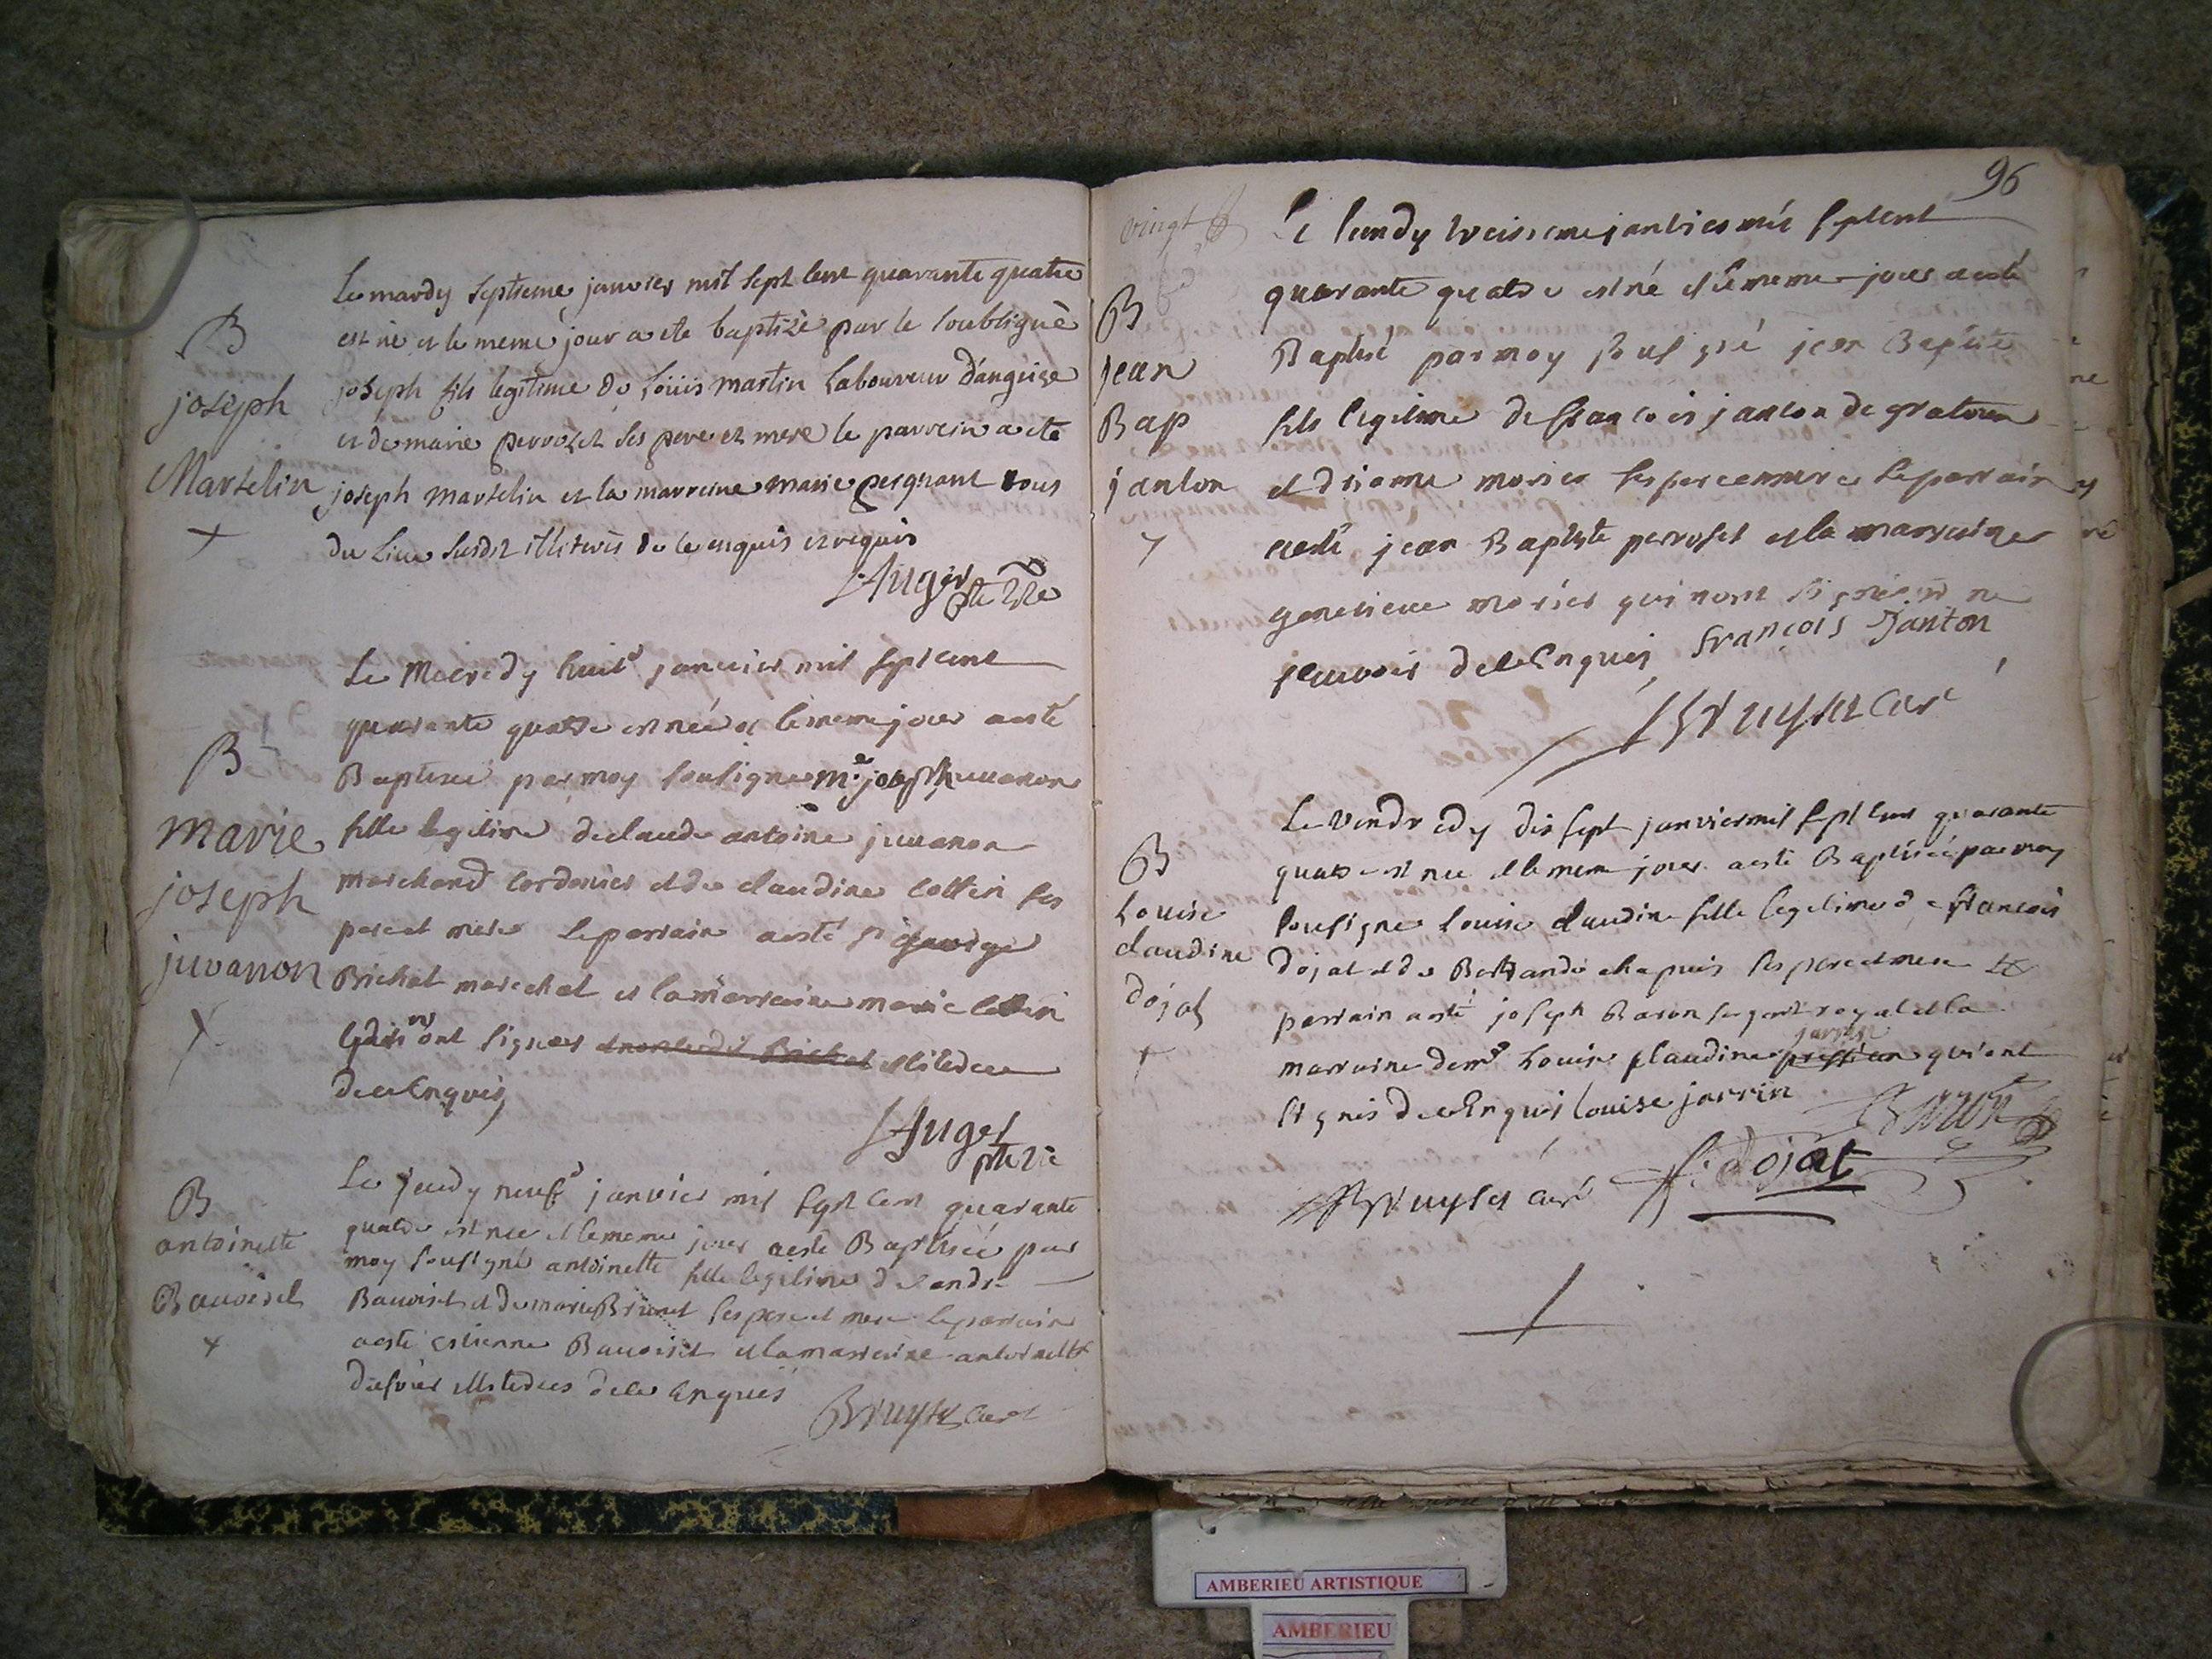 B
joseph
Marselin
Le mardy septieme janvier mil sept cent quarante quatre
est né et le meme jour a ete baptizé par le soubsigné
joseph fils legitime de Loüis martin Laboureur d'angrieze
et de marie perrozet ses pere et mere le parrein a ete
joseph marselin et la marreine marie pergnant tous
du Lieu susdit illiterés de ce enquis et requis
Auger ptre vic
B
marie
joseph
juvanon
Le Mecredy huit janvier mil sept cent
quarante quatre est née et le meme jour a esté
Baptisée par moy sousigné m.e joseph juvanon
fille legitime de claude antoine juvanon
marchand cordonier et de claudine cottin ses
pere et mere le parrain a esté
Brichat marechal et la marraine marie cottin
ont signer illitéré
de ce Enquis
Auger
ptre vic
B
antoinette
Bauoiset
Le jeudy neuf janvier mil sept cent quarante
quatre est nee et le meme jour a esté Baptisée par
moy sousigné antoinette fille legitime de andre
Bauoiset et de marie Brunet ses pere et mere le parrain
a esté estienne Bauoiset et la marraine antoinette
illiterées de ce Enquis
Bruyset curé
96
vingt
B
jean
Bap
janton
Le lundy treisieme janvier mil sept cent
quarante quatre est né et le meme jour a esté
Baptisé par moy sousigné jean Baptiste
fils legitime de francois janton de
et morier ses pere et mere le parrain
a esté jean Baptiste perroset et la marraine
genevieve morier qui nont signé
scavoir de ce Enquis françois Janton
Bruyset curé
B
Louise
claudine
dojat
Le Vendredy dix sept janvier mil sept cent quarante
quatre est nee et le meme jour a esté Baptisée par moy
sousigné Louise claudine fille legitime de francois
dojat et de chapuis ses pere et mere le
parrain a esté joseph Baron sergent royal et la
jarrin
marraine dem.e Louise claudine qui ont
signés de ce Enquis louise jarrin
Baron
Bruyset curé f. dojat
AMBERIEU ARTISTIQUE
AMBERIEU